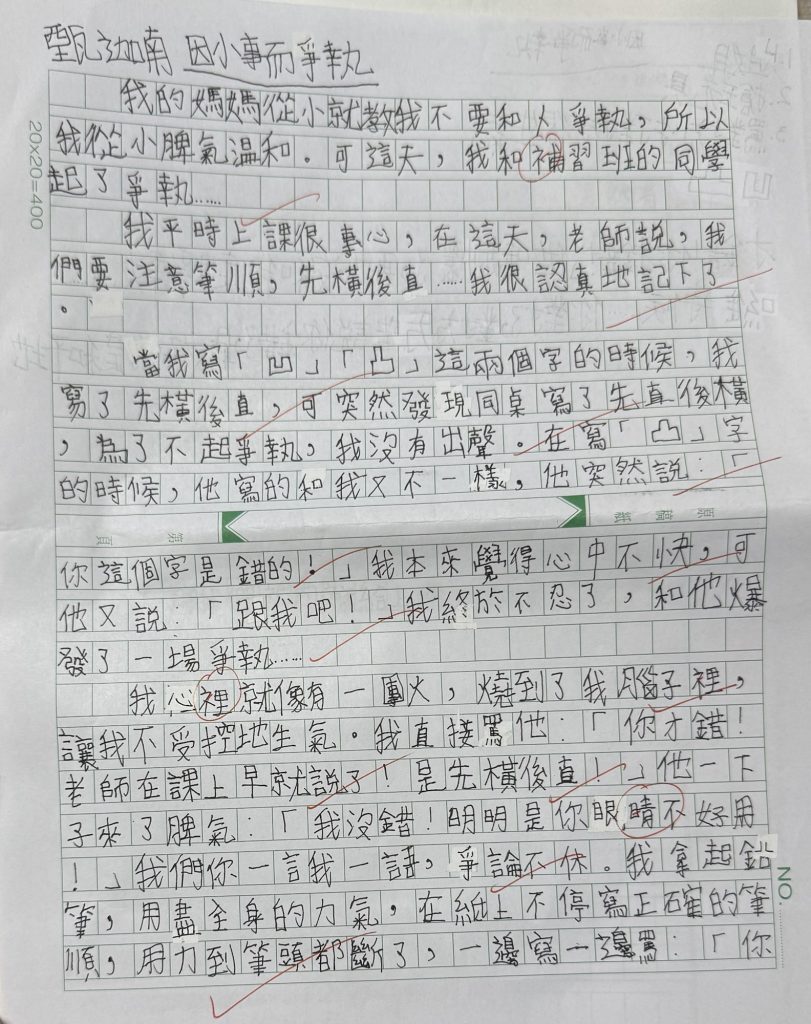 甄迦南 因小事而爭執
我的媽媽從小就教我不要和人爭執，所以
我從小脾氣溫和。可這天，我和補習班的同學
起了爭執……
我平時上課很專心，在這天，老師說，我
們要注意筆順，先橫後直……我很認真地記下了
。
當我寫「凹」「凸」這兩個字的時候，我
寫了先橫後直，可突然發現同桌寫了先直後橫
，為了不起爭執，我沒有出聲。在寫「凸」字
的時候，他寫的和我又不一樣，他突然說：「
你這個字是錯的！」我本來覺得心中不快，可
他又說：「跟我吧！」我終於不忍了，和他爆
發了一場爭執……
我心裡就像有一團火，燒到了我腦子裡，
讓我不受控地生氣。我直接罵他：「你才錯！
老師在課上早就說了！是先橫後直！」他一下
子來了脾氣：「我沒錯！明明是你眼睛不好用
！」我們你一言我一語，爭論不休。我拿起鉛
筆，用盡全身的力氣，在紙上不停寫正確的筆
順，用力到筆頭都斷了，一邊寫一邊罵：「你
20×20=400
原稿紙
第
頁
NO.